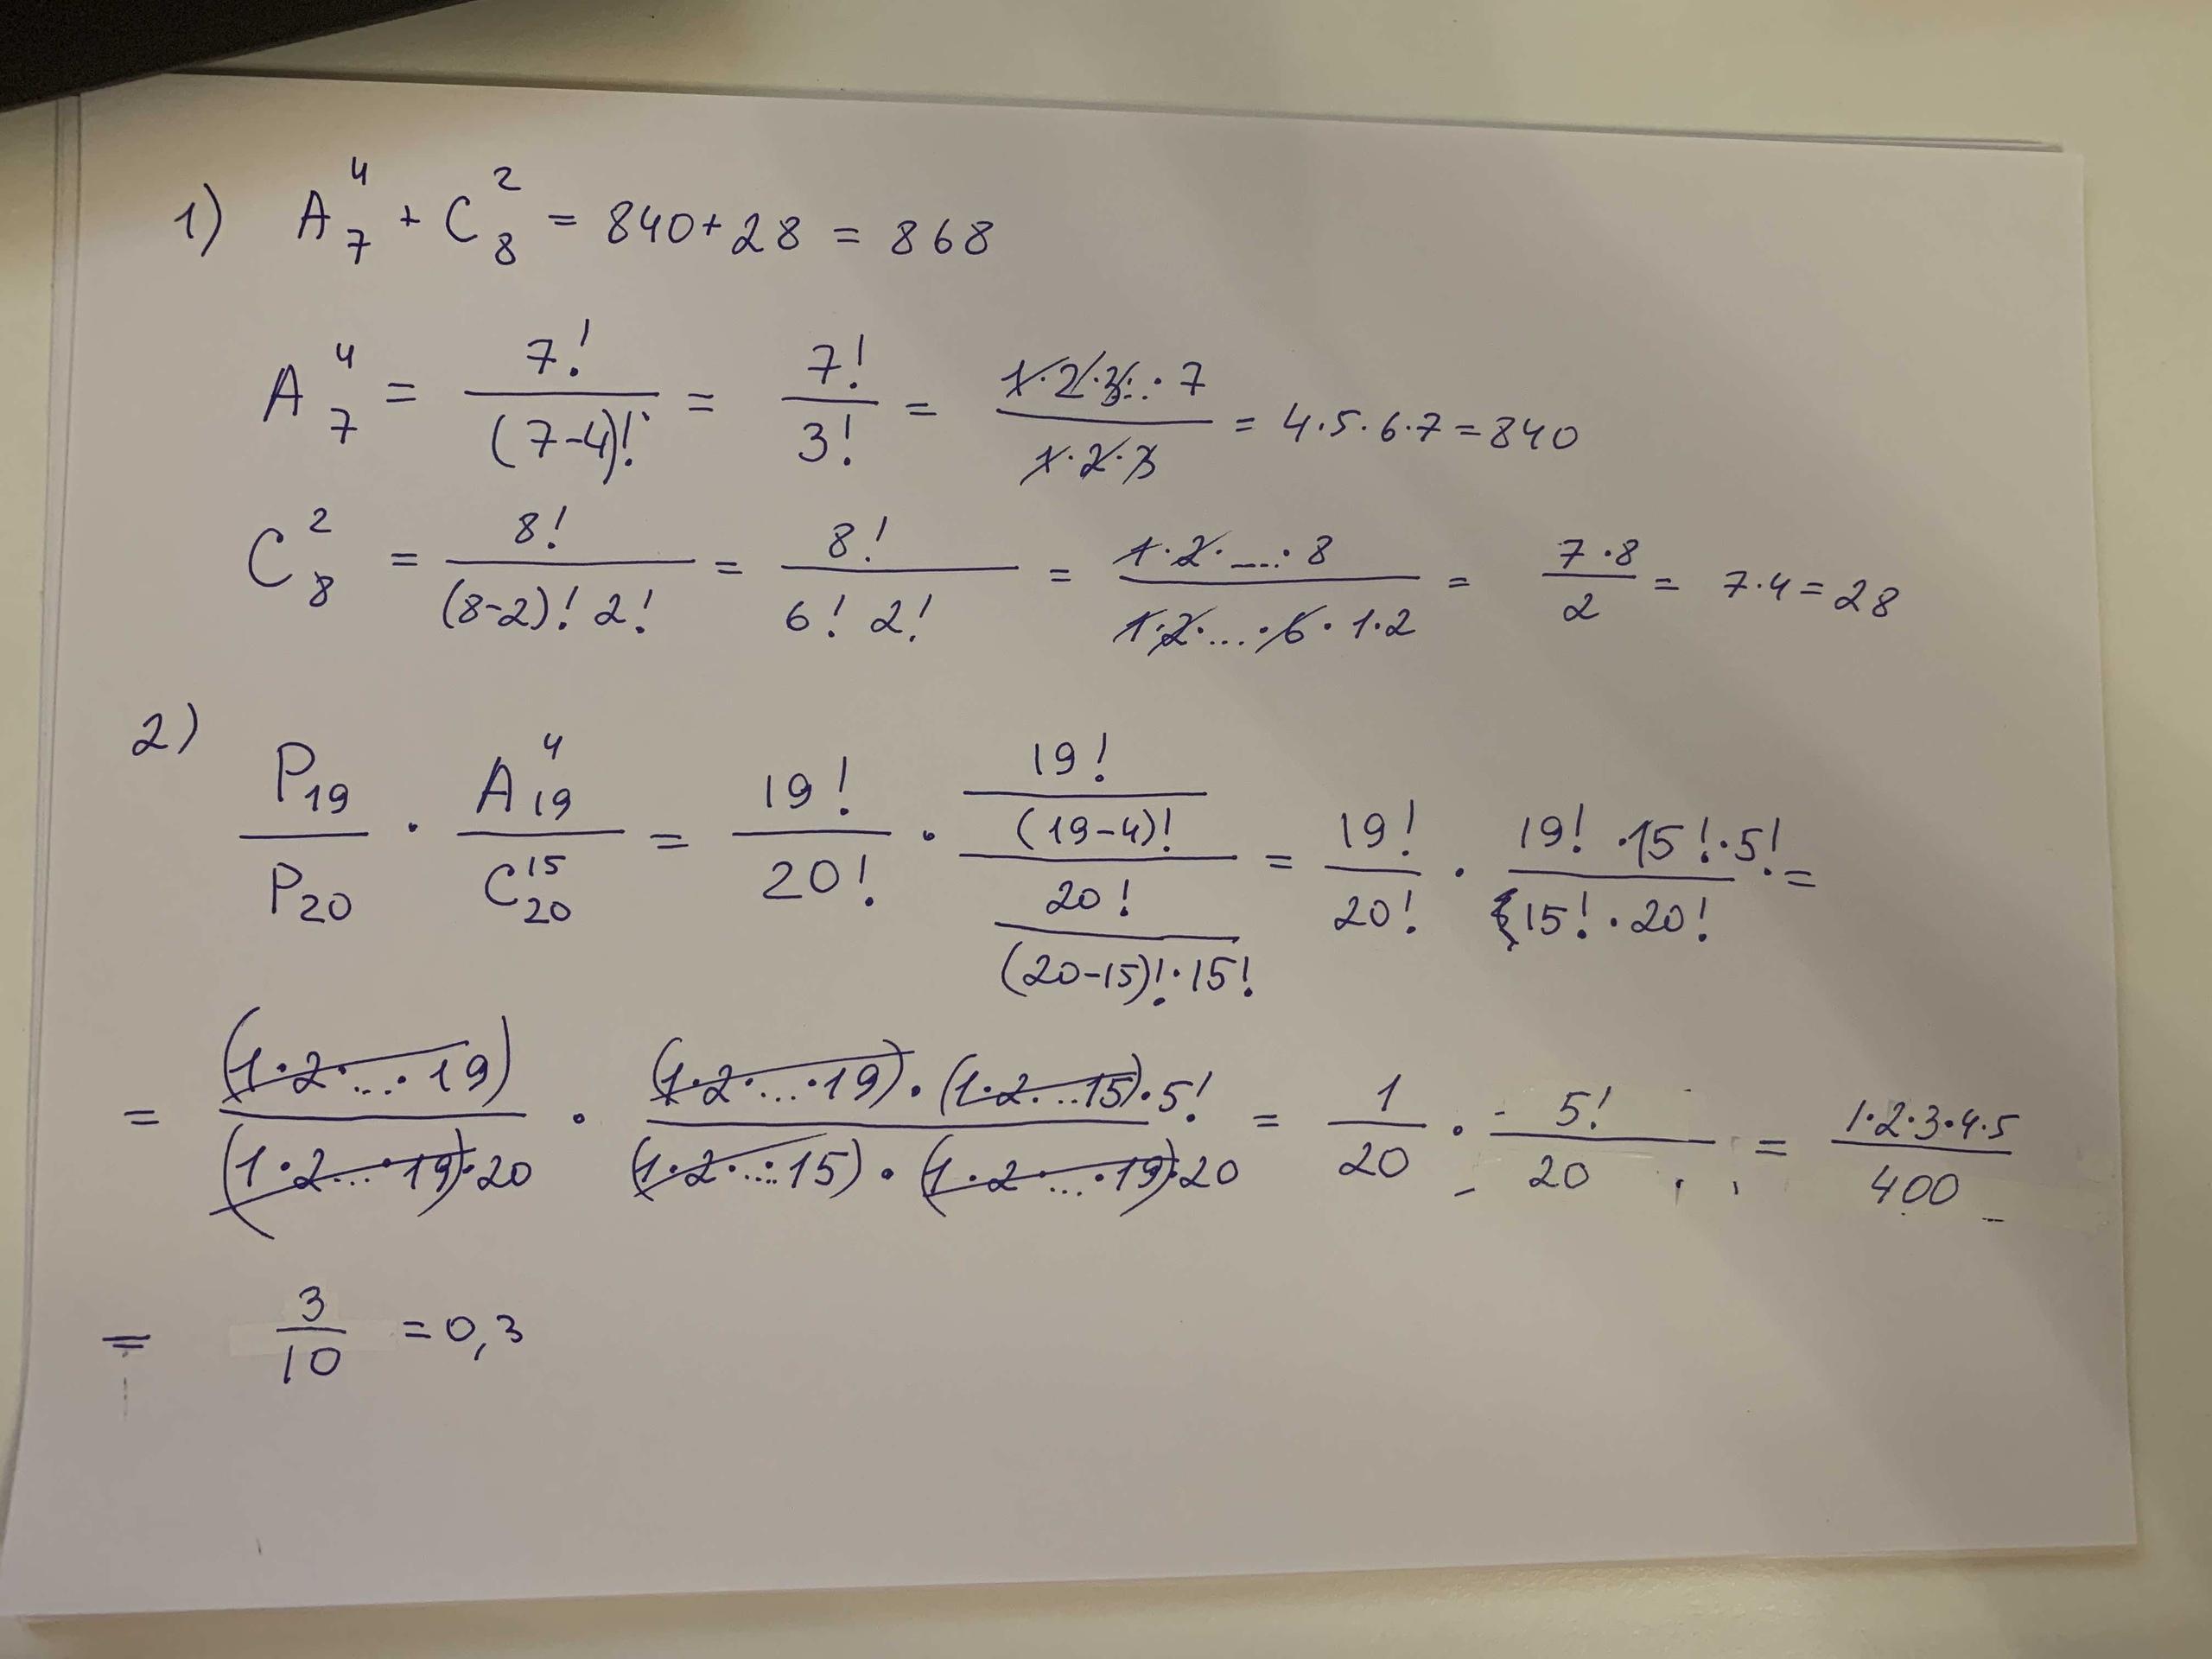 1) A₇⁴ + C₈² = 840 + 28 = 868
A₇⁴ = 7! / (7-4)! = 7! / 3! = 1·2·3...·7 / 1·2·3 = 4·5·6·7 = 840
C₈² = 8! / (8-2)! 2! = 8! / 6! 2! = 1·2·....·8 / 1·2·...·6·1·2 = 7·8 / 2 = 7·4 = 28
2) P₁₉ / P₂₀ · A₁₉⁴ / C₂₀¹⁵ = 19! / 20! · (19! / (19-4)!) / (20! / (20-15)!·15!) = 19! / 20! · 19!·15!·5! / 15!·20! =
= (1·2·...·19) / (1·2·...·19)·20 · (1·2·...·19)·(1·2...15)·5! / (1·2·...·15)·(1·2·...·19)·20 = 1 / 20 · 5! / 20 = 1·2·3·4·5 / 400
= 3 / 10 = 0,3